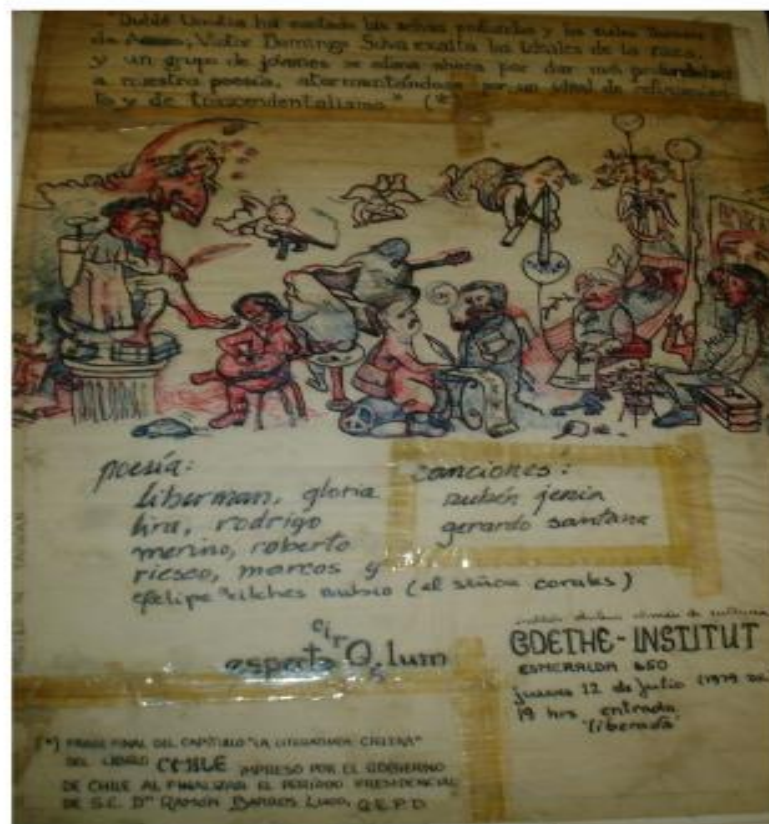 "Dublé Urrutia ha cantado las selvas profundas y las rudas
de Arauco; Victor Domingo Silva exalta los ideales de la raza,
y un grupo de jóvenes se afana ahora por dar más profundidad
a nuestra poesía, atormentándose por un ideal de refinamien-
to y de trascendentalismo" (*)
poesía:
liberman, gloria
lira, rodrigo
merino, roberto
riesco, marcos y
felipe vilches rubio (el señor corales)
canciones:
rubén jerin
gerardo santana
cir
espectáculum
instituto chileno alemán de cultura
GOETHE-INSTITUT
ESMERALDA 650
jueves 12 de julio (1979 DC)
19 hrs entrada
"liberada"
(*) FRASE FINAL DEL CAPITULO "LA LITERATURA CHILENA"
DEL LIBRO CHILE IMPRESO POR EL GOBIERNO
DE CHILE AL FINALIZAR EL PERIODO PRESIDENCIAL
DE S.E. Dn RAMÓN BARROS LUCO, Q.E.P.D.